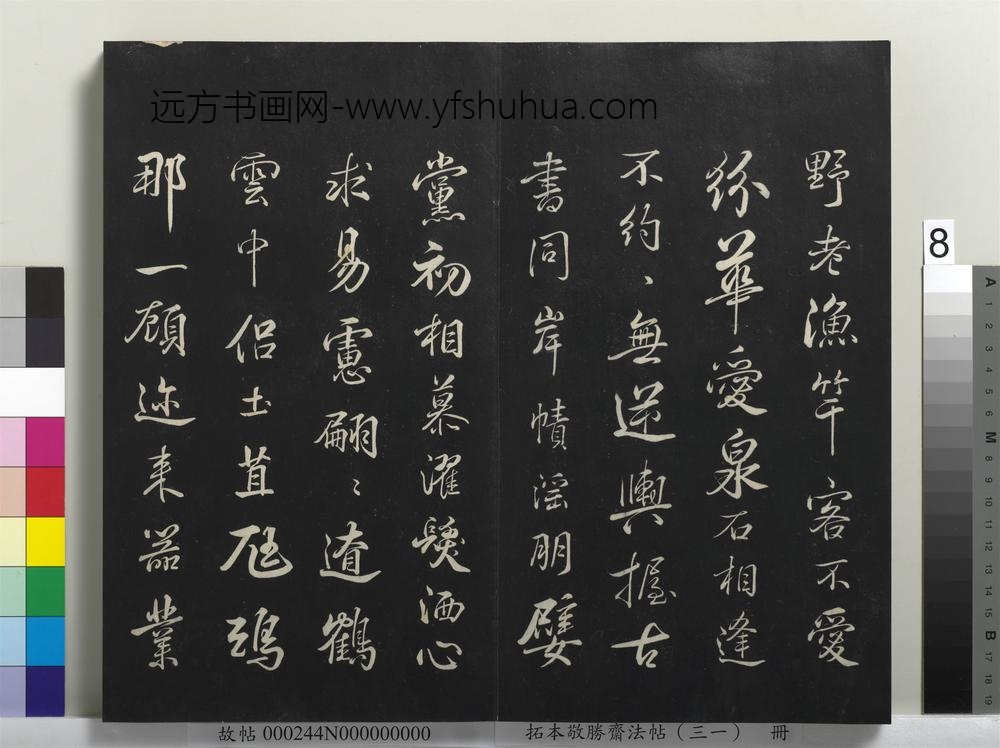 远方书画网-www.yfshuhua.com
野老漁竿客不愛
紛華愛泉石相逢
不約〻無逆輿握古
書同岸幘淫朋嬖
黨初相慕濯髮洒心
求易慮翩〻遼鶴
雲中侶土苴尪鴟
那一顧迩来器業
8
A 1 2 3 4 5 6 M 8 9 10 11 12 13 14 15 B 17 18 19
故帖 000244N000000000
拓本敬勝齋法帖（三一） 冊